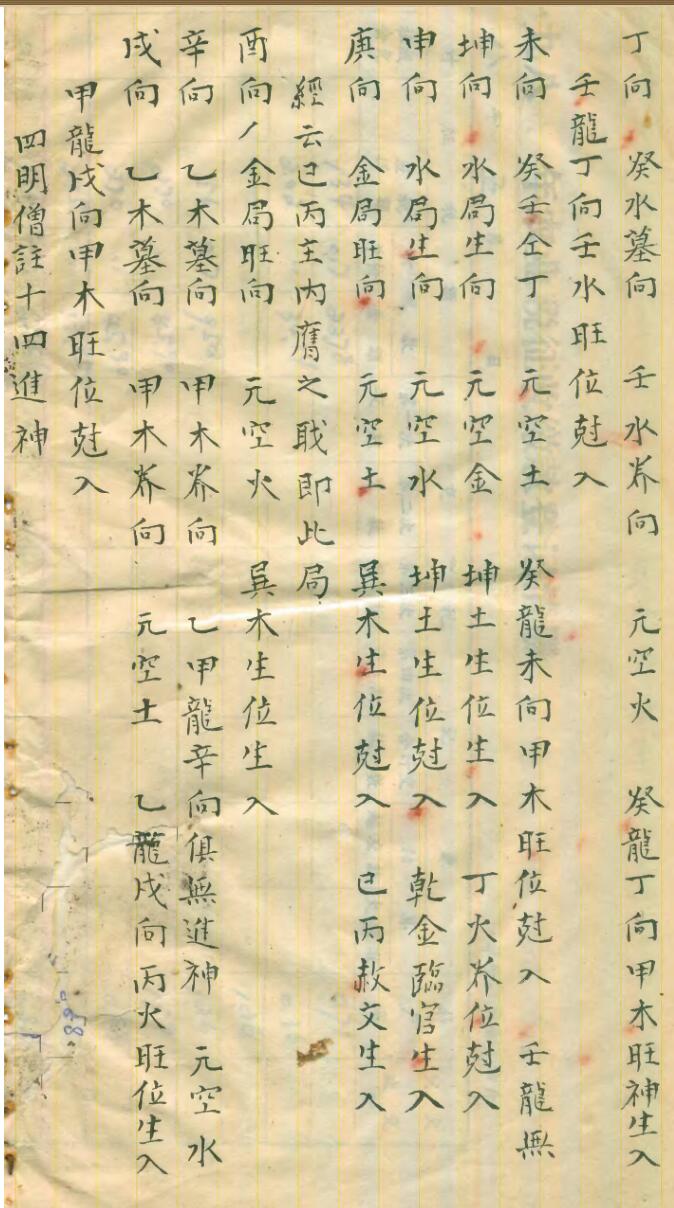 丁向 癸水墓向 壬水养向 元空火 癸龍丁向甲木旺神生入
壬龍丁向壬水旺位尅入
未向 癸壬仝丁 元空土 癸龍未向甲木旺位尅入 壬龍無
坤向 水局生向 元空金 坤土生位生入 丁火养位尅入
申向 水局生向 元空水 坤土生位尅入 乾金臨官生入
庚向 金局旺向 元空土 巽木生位尅入 已丙赦文生入
經云已丙主内膺之職即此局
酉向 金局旺向 元空火 巽木生位生入
辛向 乙木墓向 甲木养向 乙甲龍辛向俱無進神 元空水
戌向 乙木墓向 甲木养向 元空土 乙龍戌向丙火旺位生入
甲龍戌向甲木旺位尅入
四明僧註十四進神